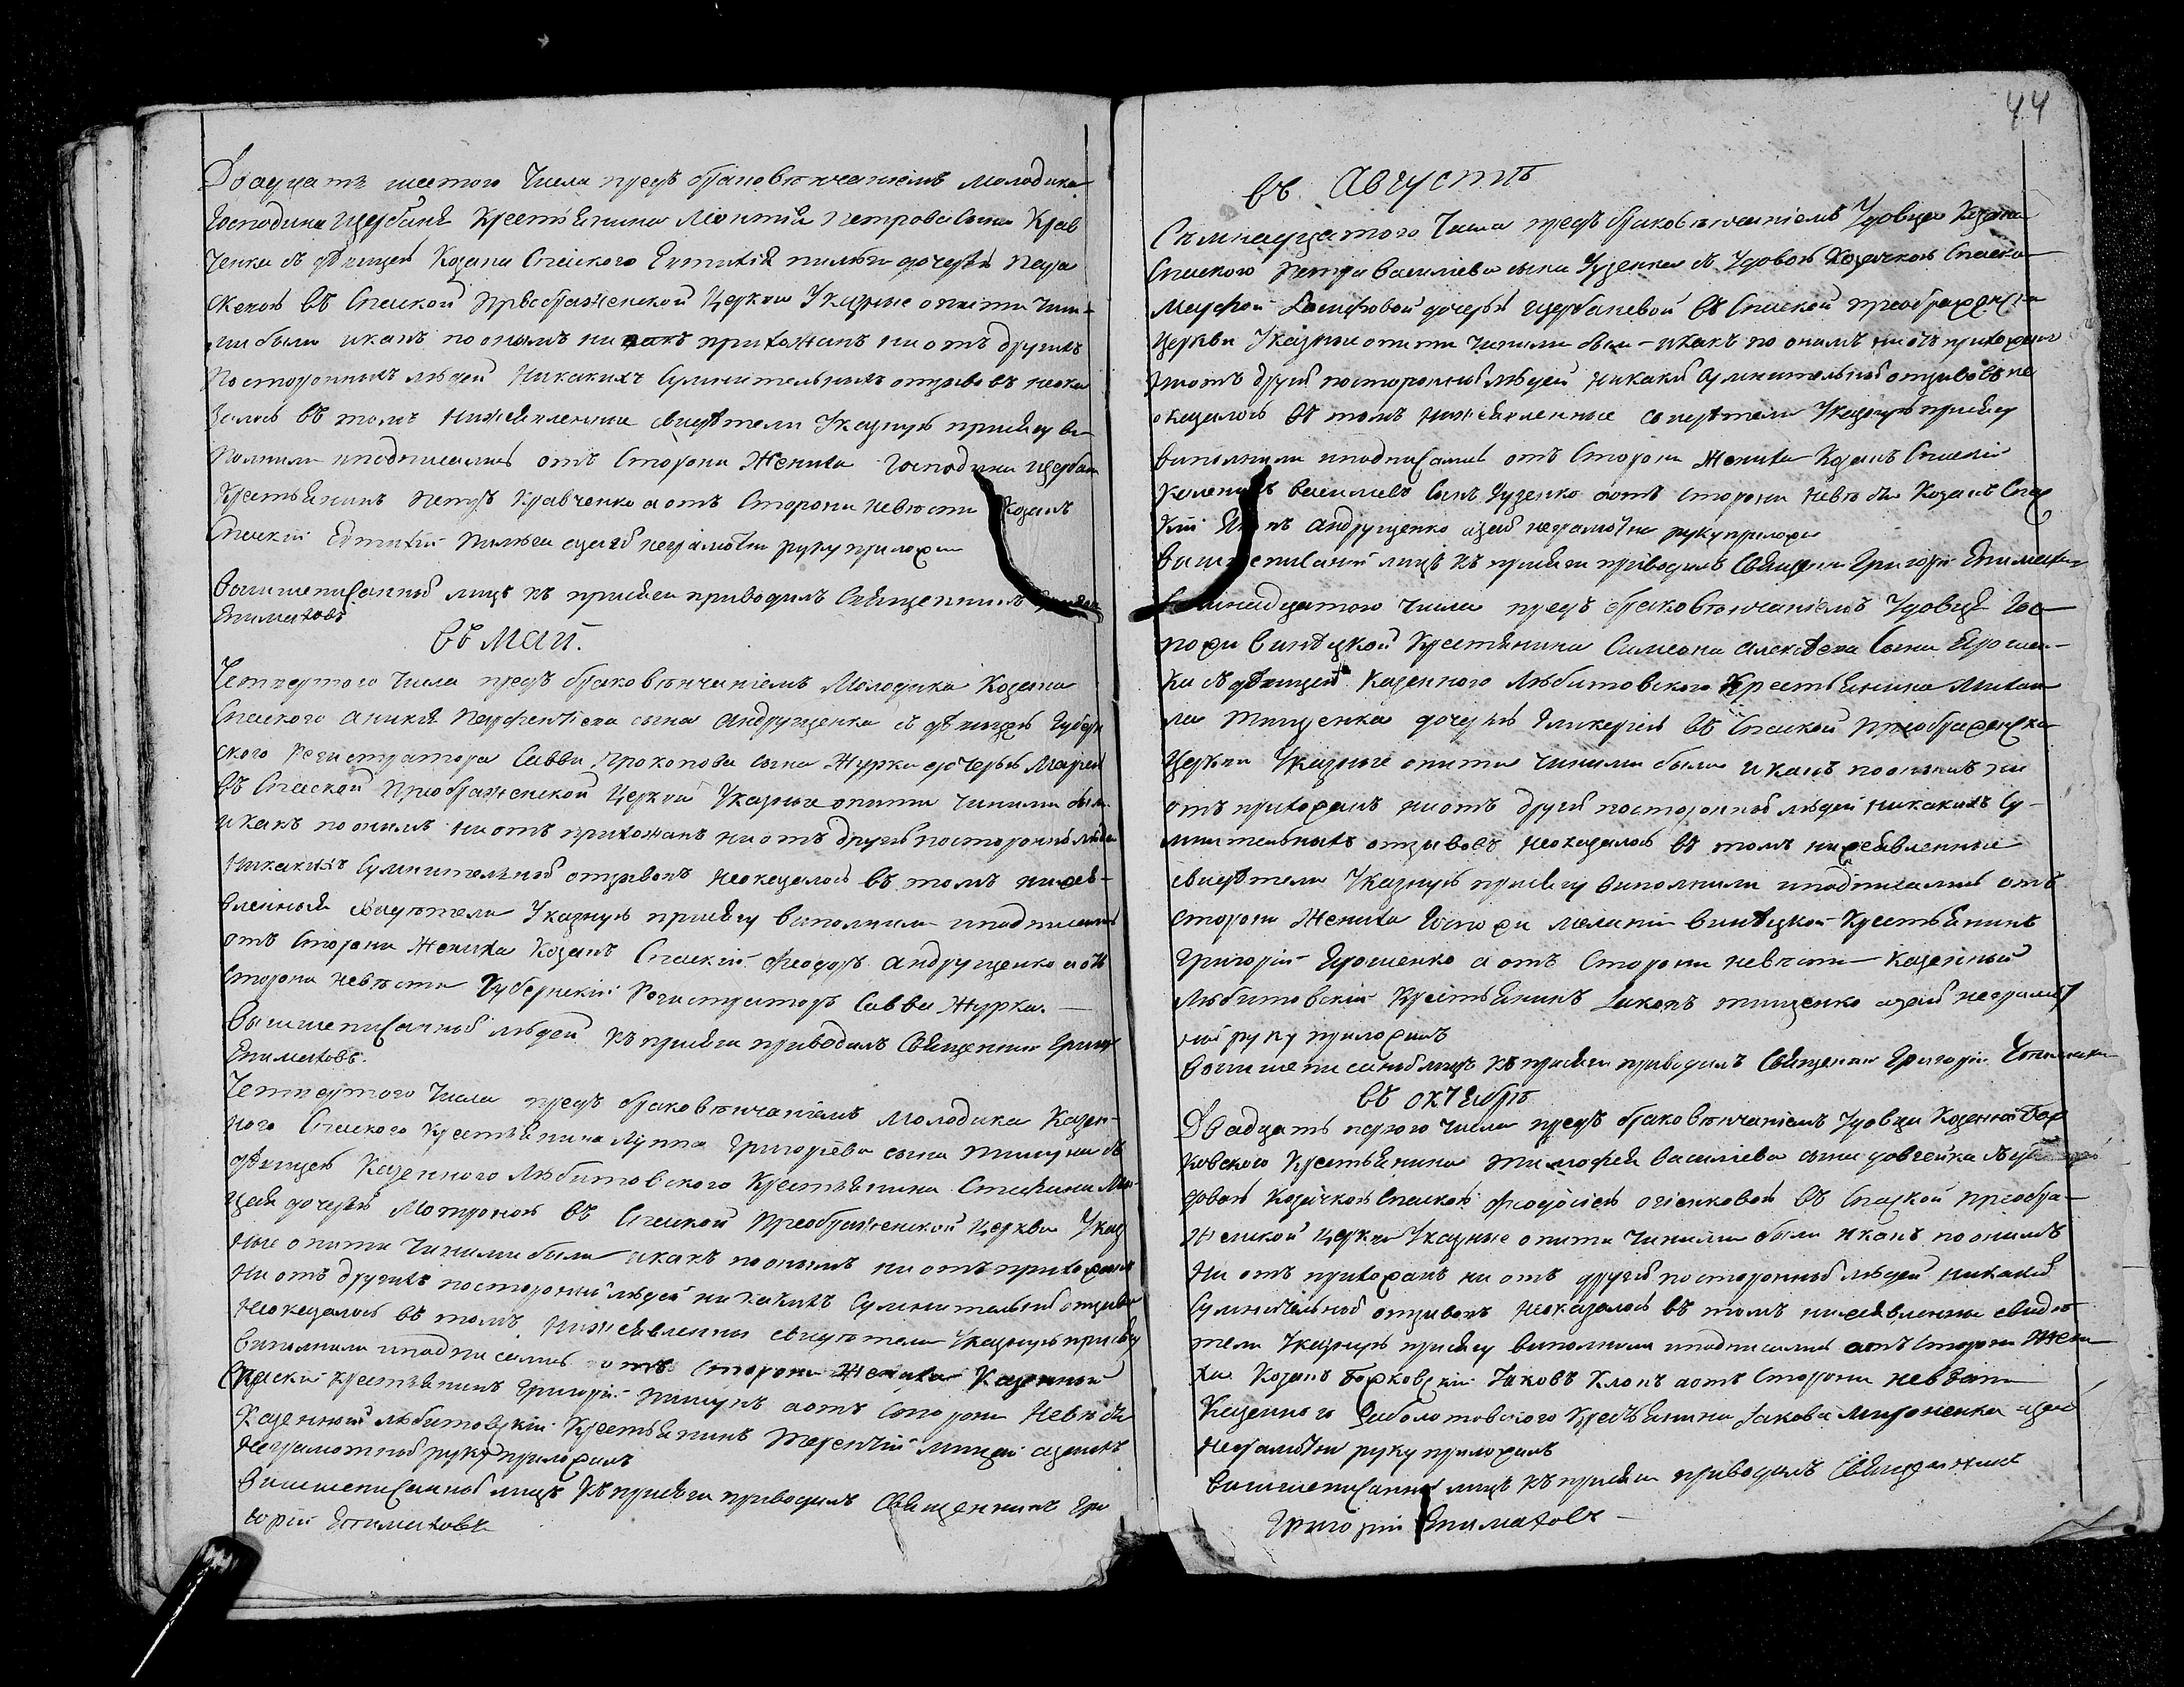 Двадцать шестого Числа предъ браковѣнчаніемъ молодика
Господина Щербанѣ Крестьянина Леонтія Петрова Сына Крав
ченка съ дѣвицей Козака Спаского Евтихія пилюги дочерью Пара
скевою въ Спаской Преображенской Церкви Указные опити чин-
ни были икакъ поонымъ ни прихожанъ ни отъ другихъ
Постороннихъ людей Никакихъ Сумнительныхъ отзывовъ неока
залось въ томъ нижеявленные свидѣтели Указную присягу ви
полнили иподписались отъ Сторони Жениха Господина Щербан
Крестьянинъ Петръ Кравченко аотъ Сторони невѣсти Козакъ
Спаскій Евтихій Пилюга неграмотни руку приложи
Вишшеписанныхъ лицъ къ присяги приводилъ Священникъ
Епимаховъ
въ маи.
Четвертого Числа предъ браковѣнчаніемъ Молодика Козака
Спаского Аникія Парфентіева сына Андрущенка съ дѣвицею Губерн
ского Регистратора Савви Прокопова сына Журки дочерью Маріею
въ Спаской Преображенской Церкви Указные опити Чинили были
икакъ поонимъ ниотъ прихожанъ ниотъ другихъ постороннихъ людей
Никакихъ Сумнительнихъ отзывовъ неоказалось въ томъ нижея-
вленный свидѣтели Указную присягу виполнили иподписались
отъ Сторони Жениха Козакъ Спаскій Феодоръ Андрущенко аотъ
Сторони невѣсти Губернскій Регистраторъ Савва Журка.
Вышшеписанныхъ людей къ присяги приводилъ Священникъ Григор
Епимаховъ.
Четвертого Числа предъ браковѣнчаніемъ молодика Казен-
ного Спаского Крестьянина Луппа Григоріева сына Тищуна съ
дѣвицей Казенного Любитовского Крестьянина Стефана
дочерью Мотроною въ Спаской Преображенской Церкви Указ
ные опити Чинили были икакъ поонымъ ни отъ прихожанъ
Ни отъ другихъ постороннихъ людей никакихъ Сумнительныхъ отзывовъ
Неоказалось въ томъ Нижеявленны свидѣтели Указную присягу
Виполнили иподписались отъ сторони Жениха Казенный
Спаскій крестьянинъ Григорій аотъ Сторони Невѣсти
Казенный любитовскій Крестьянинъ Терентій
Неграмотныхъ руку приложилъ
Вишшеписанныхъ лицъ къ присяги приводилъ Священникъ Гри
горій Епимаховъ
44
въ Августѣ
Съмнадцатого Числа предъ браковѣнчаніемъ Удовца Козака
Спаского Петра Василіева сына Гузенка съ Удовою Козачкою Спаско
Марфой Іосифовой дочерью Щербаневой въ Спаской Преображенс
Церкви Указные опити Чинили были икакъ по онимъ ниотъ прихожан
ниотъ другихъ постороннихъ людей никакихъ сумнительныхъ отзивовъ не
оказалось въ томъ нижеявленные свидѣтели Указную присягу
виполнили иподписались отъ Сторони Жениха Козакъ Спаскій
Василіевъ Синъ Гузенко аотъ сторони Невѣсти Козакъ Спас
кій Андрущенко неграмотни руку приложи
Вишшеписаний лицъ къ присяги приводилъ Священни Григорій Епимахо
Семнадцатого Числа предъ браковѣнчаніемъ Удовца Гос
пожи Винѣцкой Крестьянина Симеона Алексѣева Сына Ярошен-
ка съ дѣвицею Казенного Любитовского Крестьянина Михаи
ла Тищенка дочерью Гликеріею въ Спаской Преображенско
Церкви Указные опити чинили были икакъ поонымъ ни
отъ прихожанъ ниотъ другихъ постороннихъ людей никакихъ Су-
мнительныхъ отзывовъ неоказалось въ томъ нижеявленные
свидѣтели Указную присягу виполнили иподписались отъ
сторони Жениха Госпожи Меланіи Винѣцкой Крестьянинъ
Григорій Ярошенко а отъ Сторони невѣсти Казенный
Любитовскій Крестьянинъ Іаковъ тищенко неграмот
ній руку приложилъ
Вишшеписанныхъ лицъ къ присяги приводилъ Священник Григорій Епимахо
въ Октябрѣ
Двадцать первого числа предъ браковѣнчаніемъ Удовца Казенного Бор
ковского Крестьянина Тимофея Василіева сына довгейка
довою Козачкою Спаской Феодосіею Огіенковою въ Спаской Преобра-
женской Церкви Указные опити Чинили были икакъ поонимъ
Ни отъ прихожанъ ни отъ другихъ постороннихъ людей никакихъ
Сумнительныхъ отзивовъ неоказалось въ томъ нижеявленные свидѣ
тели Указную присягу виполнили иподписались отъ Сторони Жени
ха Козакъ Борковскій Іаковъ Клокъ аотъ Сторони невѣсти
Казенного Заболотовского Крестьянина Іакова Мироненка
неграмотни руку приложилъ
Вишшеписанныхъ лицъ къ присяги приводилъ Священникъ
Григорій Епимаховъ